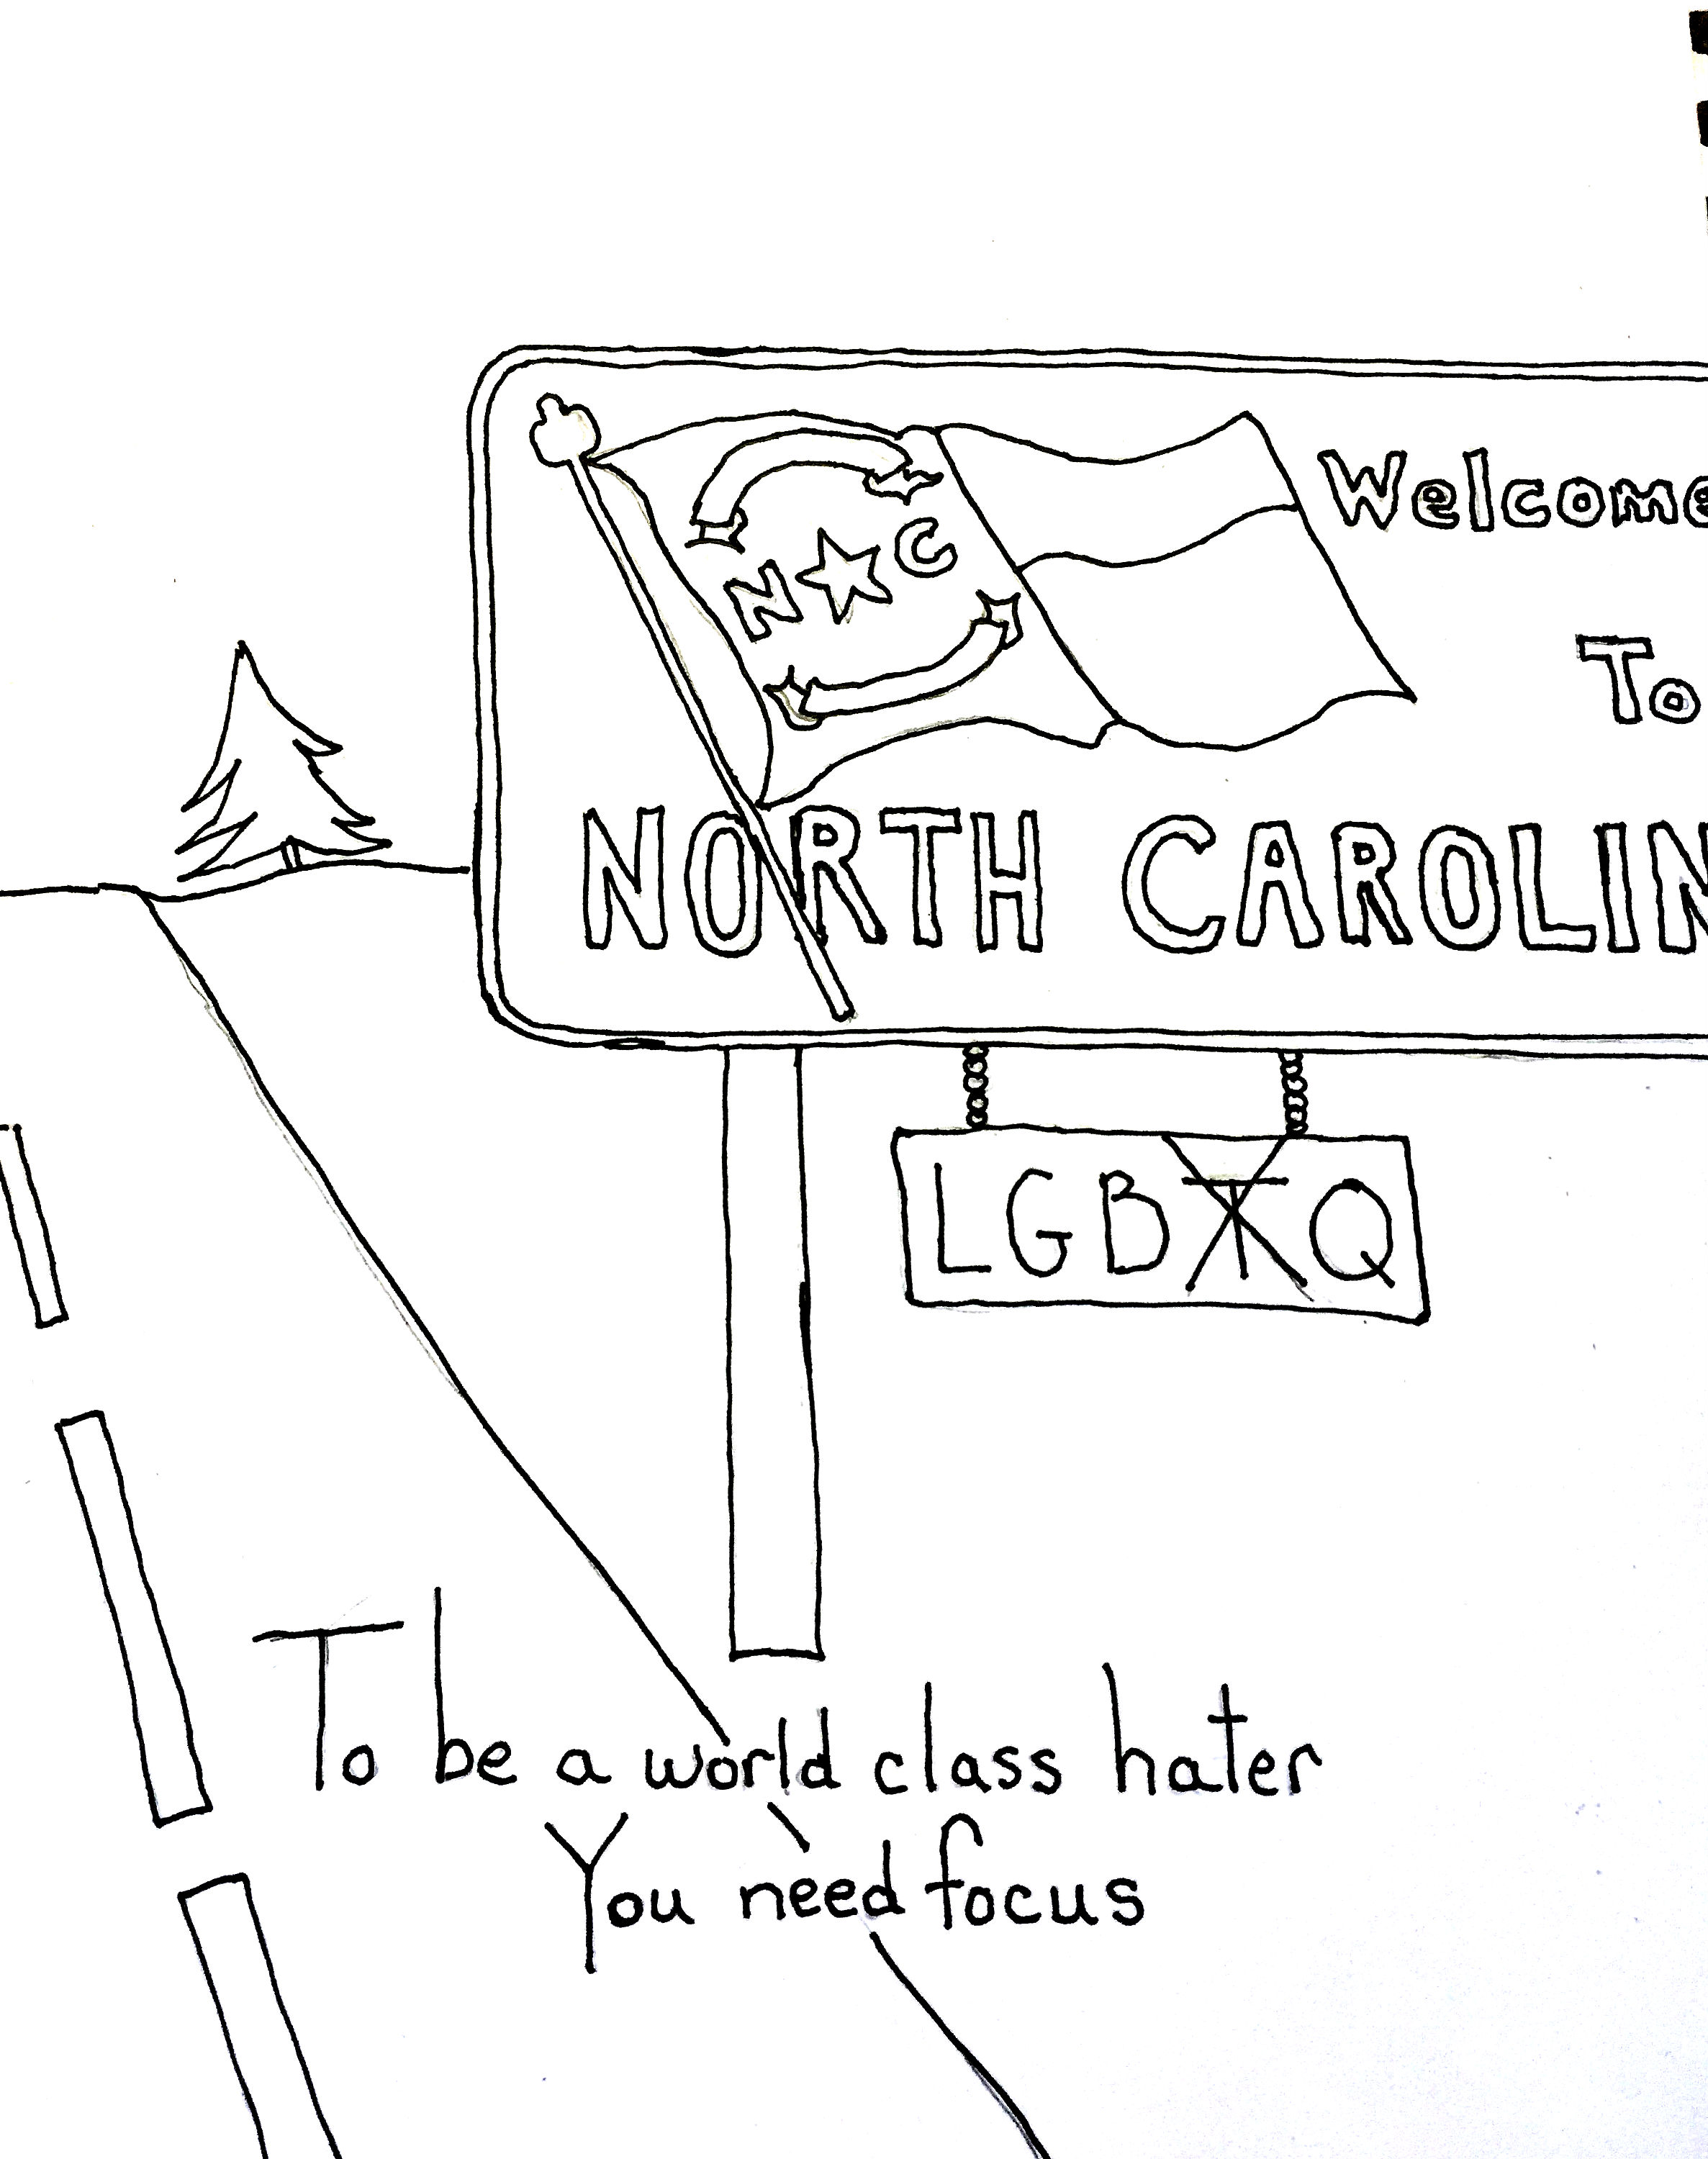 Welcome
To
N C
NORTH CAROLIN
LGBTQ
To be a world class hater
You need focus